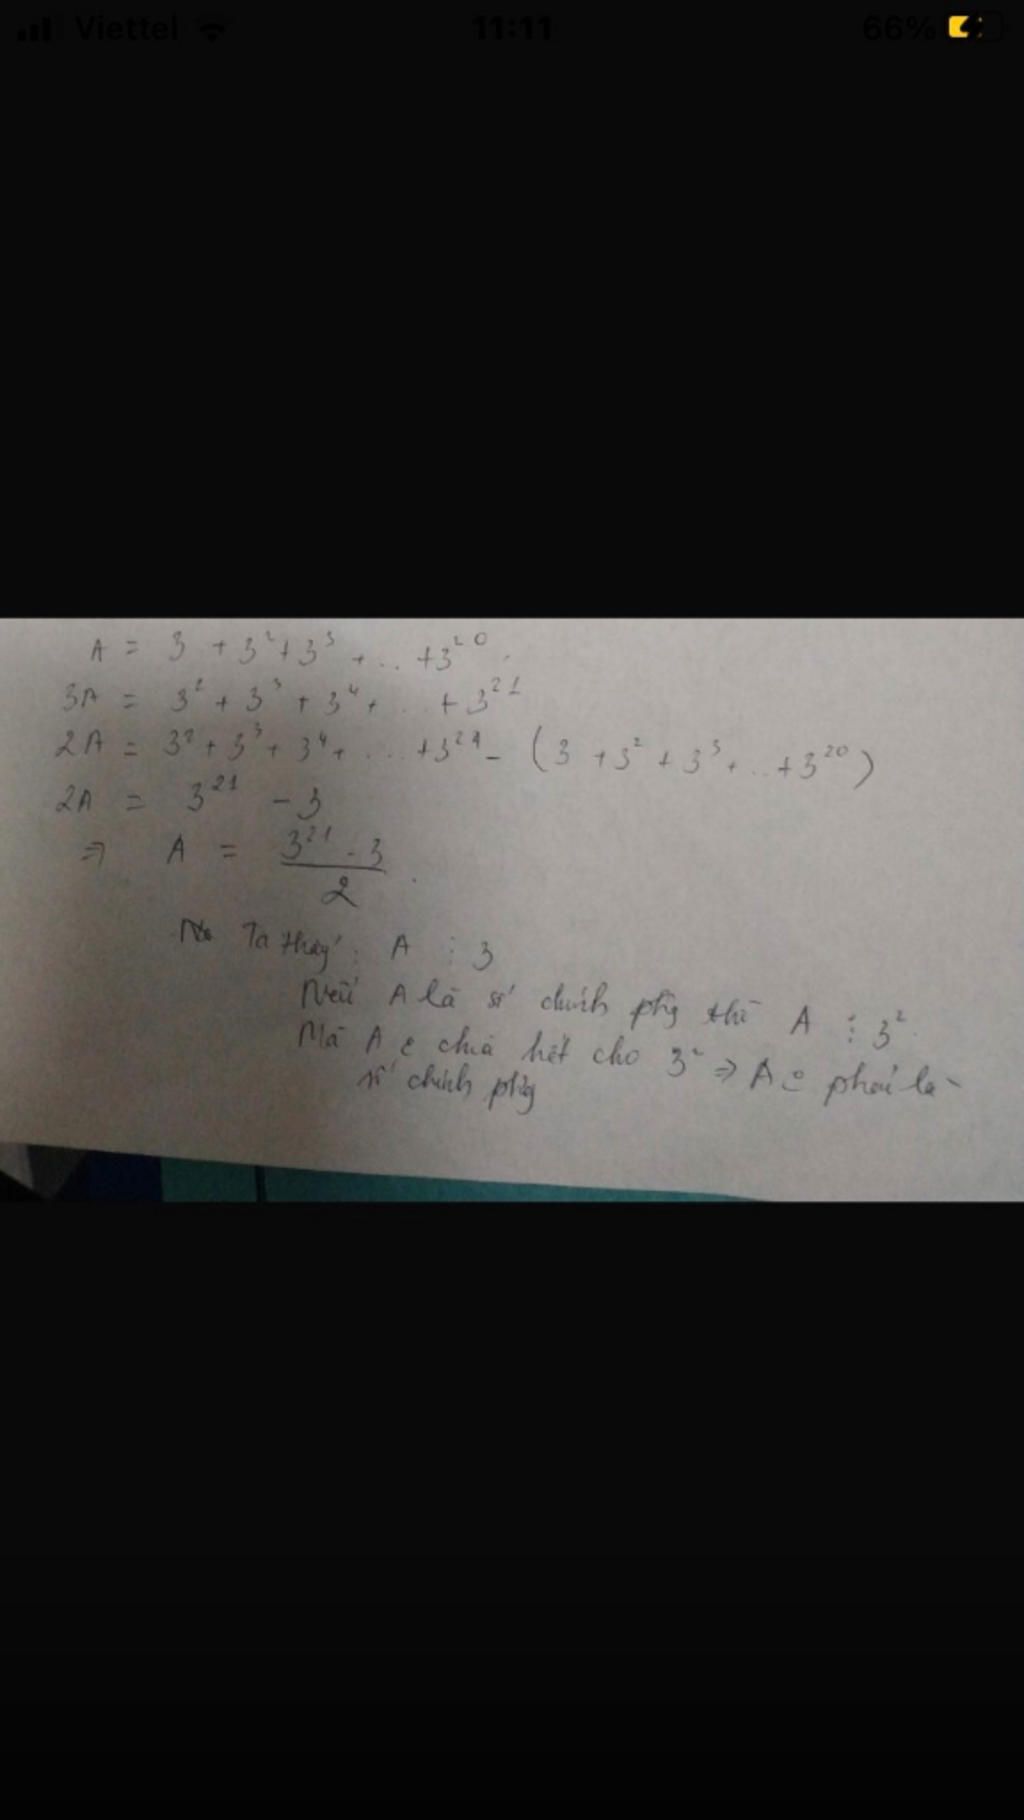 Viettel 11:11 66%
A = 3 + 3² + 3³ + .. + 3²⁰.
3A = 3² + 3³ + 3⁴ + .. + 3²¹
2A = 3² + 3³ + 3⁴ + ... + 3²¹ - (3 + 3² + 3³ + .. + 3²⁰)
2A = 3²¹ - 3
⇒ A = (3²¹ - 3)/2.
Ta thấy: A ⋮ 3
Nếu A là số chính phg thì A ⋮ 3².
Mà A chia hết cho 3² ⇒ A phải là
số chính phg